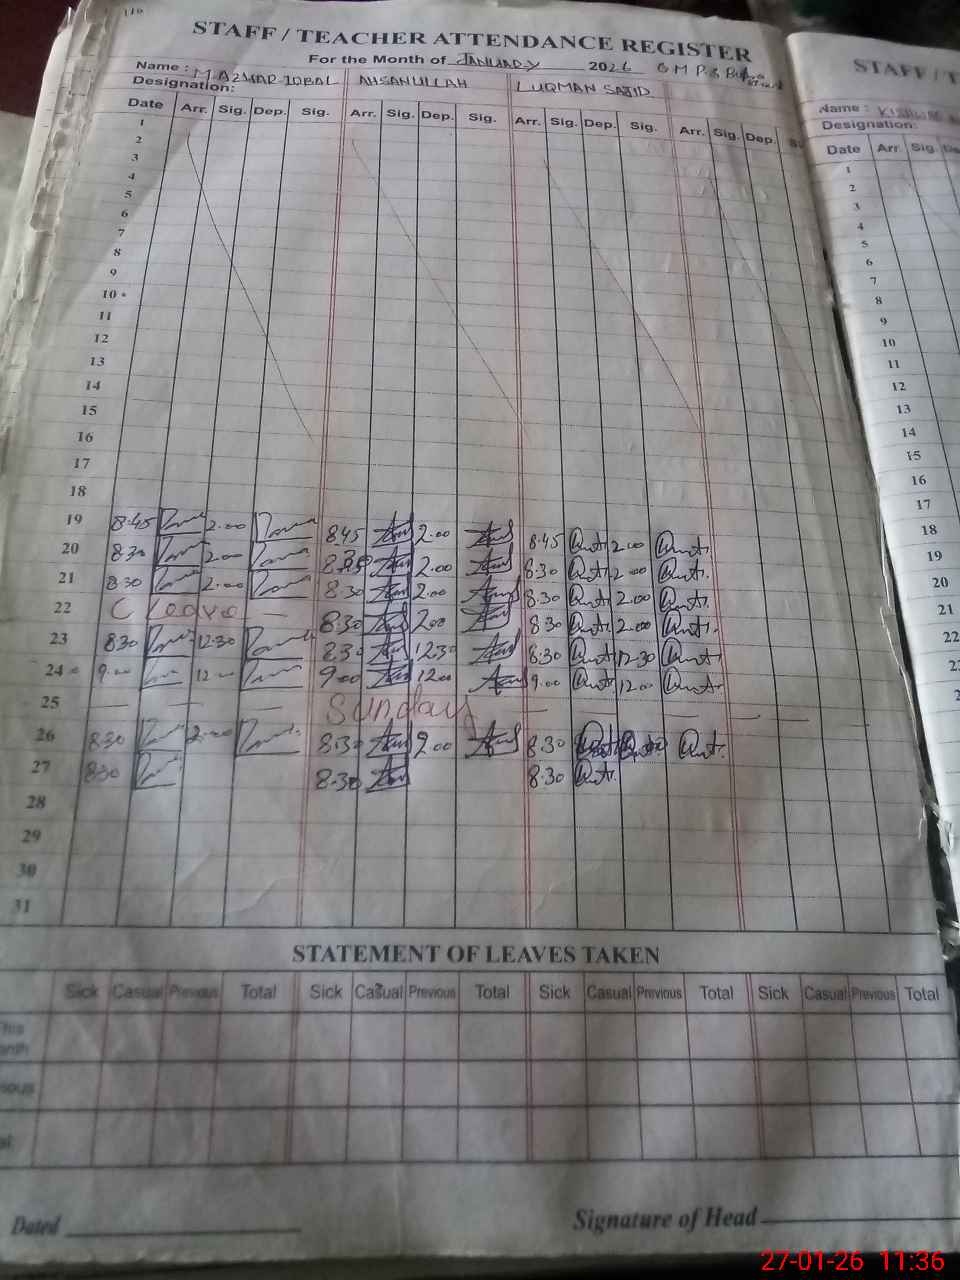 110
STAFF / TEACHER ATTENDANCE REGISTER
For the Month of JANUARY 2026 G M P S
Name : M. AZHAR IQBAL AHSANULLAH LUQMAN SAJID
Designation:
Date Arr. Sig. Dep. Sig. Arr. Sig. Dep. Sig. Arr. Sig. Dep. Sig. Arr. Sig. Dep. S
1
2
3
4
5
6
7
8
9
10
11
12
13
14
15
16
17
18
19 8.45 2.00 8.45 2.00 8.45 2.00
20 8.30 2.00 2.00 8.30 2.00
21 8.30 2.00 8.30 2.00 8.30 2.00
22 C Leave 8.30 2.00 8.30 2.00
23 8.30 12.30 8.30 12.30 8.30 12.30
24 9.00 12.00 9.00 12.00 9.00 12.00
25 Sunday
26 8.30 2.00 8.30 2.00 8.30
27 8.30 8.30 8.30
28
29
30
31
STATEMENT OF LEAVES TAKEN
Sick Casual Previous Total Sick Casual Previous Total Sick Casual Previous Total Sick Casual Previous Total
This
onth
ious
al
Dated
Signature of Head
STAFF / T
Name :
Designation:
Date Arr. Sig.
1
2
3
4
5
6
7
8
9
10
11
12
13
14
15
16
17
18
19
20
21
22
27-01-26 11:36